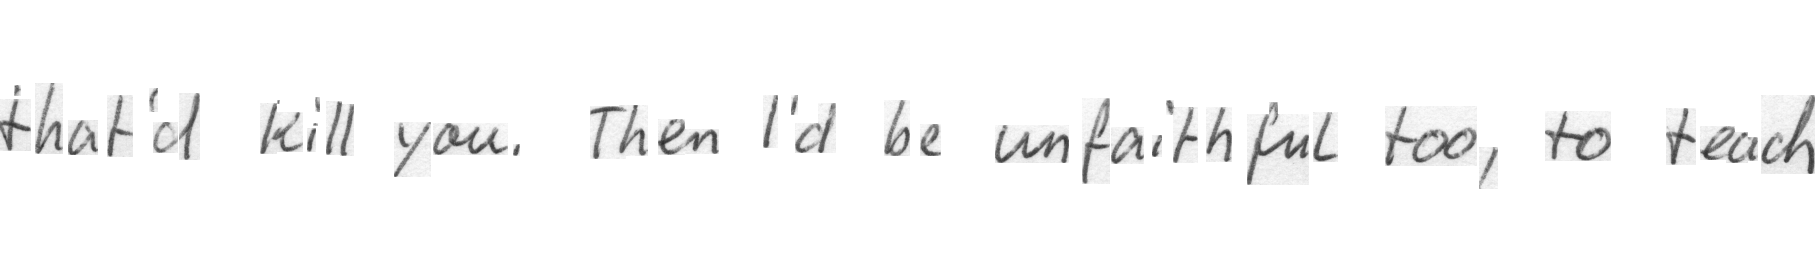 that'd kill you. Then I'd be unfaithful too, to teach